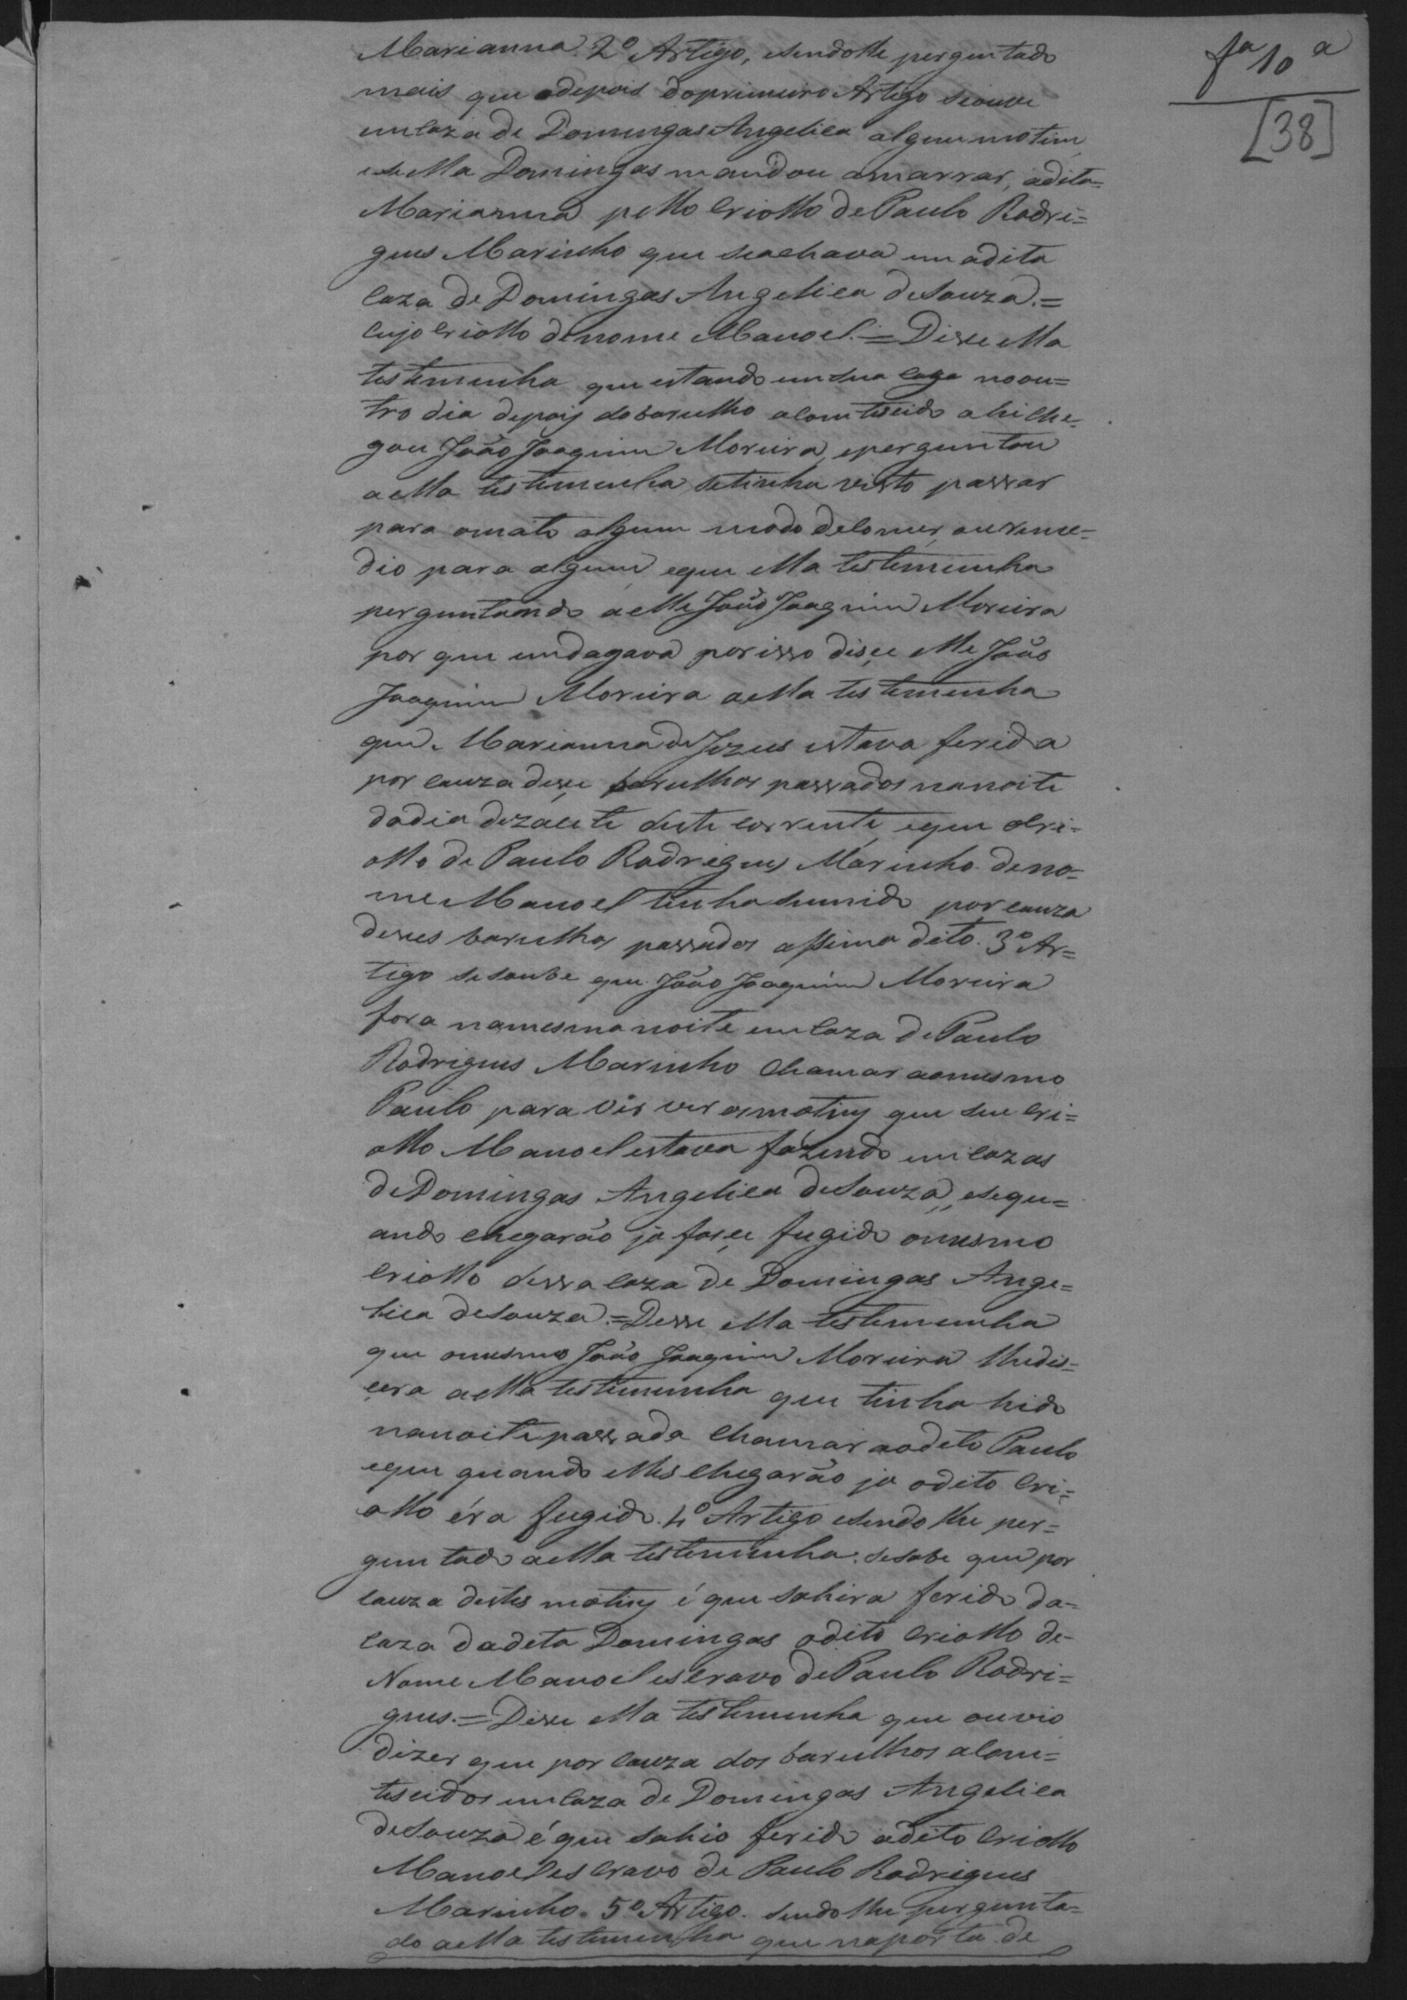 fª 10ª
[38]
Marianna. 2º Artigo, esendolhe perguntado
mais que adepois doprimeiro Artigo seouve
emcaza de Domingas Angelica algum motim,
esella Domingas mandou amarrar, adita=
Marianna pello Criollo de Paulo Rodri=
gues Marinho que seachava em adita
Caza de Domingas Angelica deSouza.=
Cujo Criollo denome Manoel.= Disse ella
testemunha que estando emsua caza noou=
tro dia depois dobarulho acontescido ahi che=
gou João Joaquim Moreira, eperguntou
aella testemunha setinha visto passar
para omato algum modo deComer, oureme=
dio para alguem, eque ella testemunha
perguntando aelle João Joaquim Moreira
por que emdagava porisso disçe elle João
Joaquim Moreira aella testemunha
que Marianna de Jezus estava ferida
por cauza desse barulhos passados nanoite
dodia dezacete deste corrente, eque oCri=
ollo de Paulo Rodrigues Marinho deno=
me Manoel tinha sumido por cauza
desses barulhos passados assima dito. 3º Ar=
tigo sesoube que João Joaquim Moreira
fora namesma noite emCaza de Paulo
Rodrigues Marinho Chamar aomesmo
Paulo para vir ver osmotins que seu Cri=
ollo Manoel estava fazendo em Cazas
de Domingas Angelica deSouza, esequ=
ando chegarão ja fosçe fugido omesmo
Criollo dessa Caza de Domingas Ange=
lica deSouza.= Desse ella testemunha
que omesmo João Joaquim Moreira lhedis=
çera aella testemunha que tinha hido
nanoite passada Chamar aodito Paulo
eque quando elles Chegarão ja odito Cri=
ollo éra fugido. 4º Artigo esendo lhe per=
guntado aella testemunha. sesabe que por
Cauza destes motins é que sahira ferido da=
Caza dadita Domingas odito Criollo de=
Nome Manoel esCravo de Paulo Rodri=
gues.= Disse ella testemunha que ouvio
dizer que por Cauza dos barulhos acom=
tescidos emCaza de Domingas Angelica
deSouza é que sahio ferido odito Criollo
Manoel esCravo de Paulo Rodrigues
Marinho. 5º Artigo. Sendo lhe pergunta=
do aella testemunha que naporta de